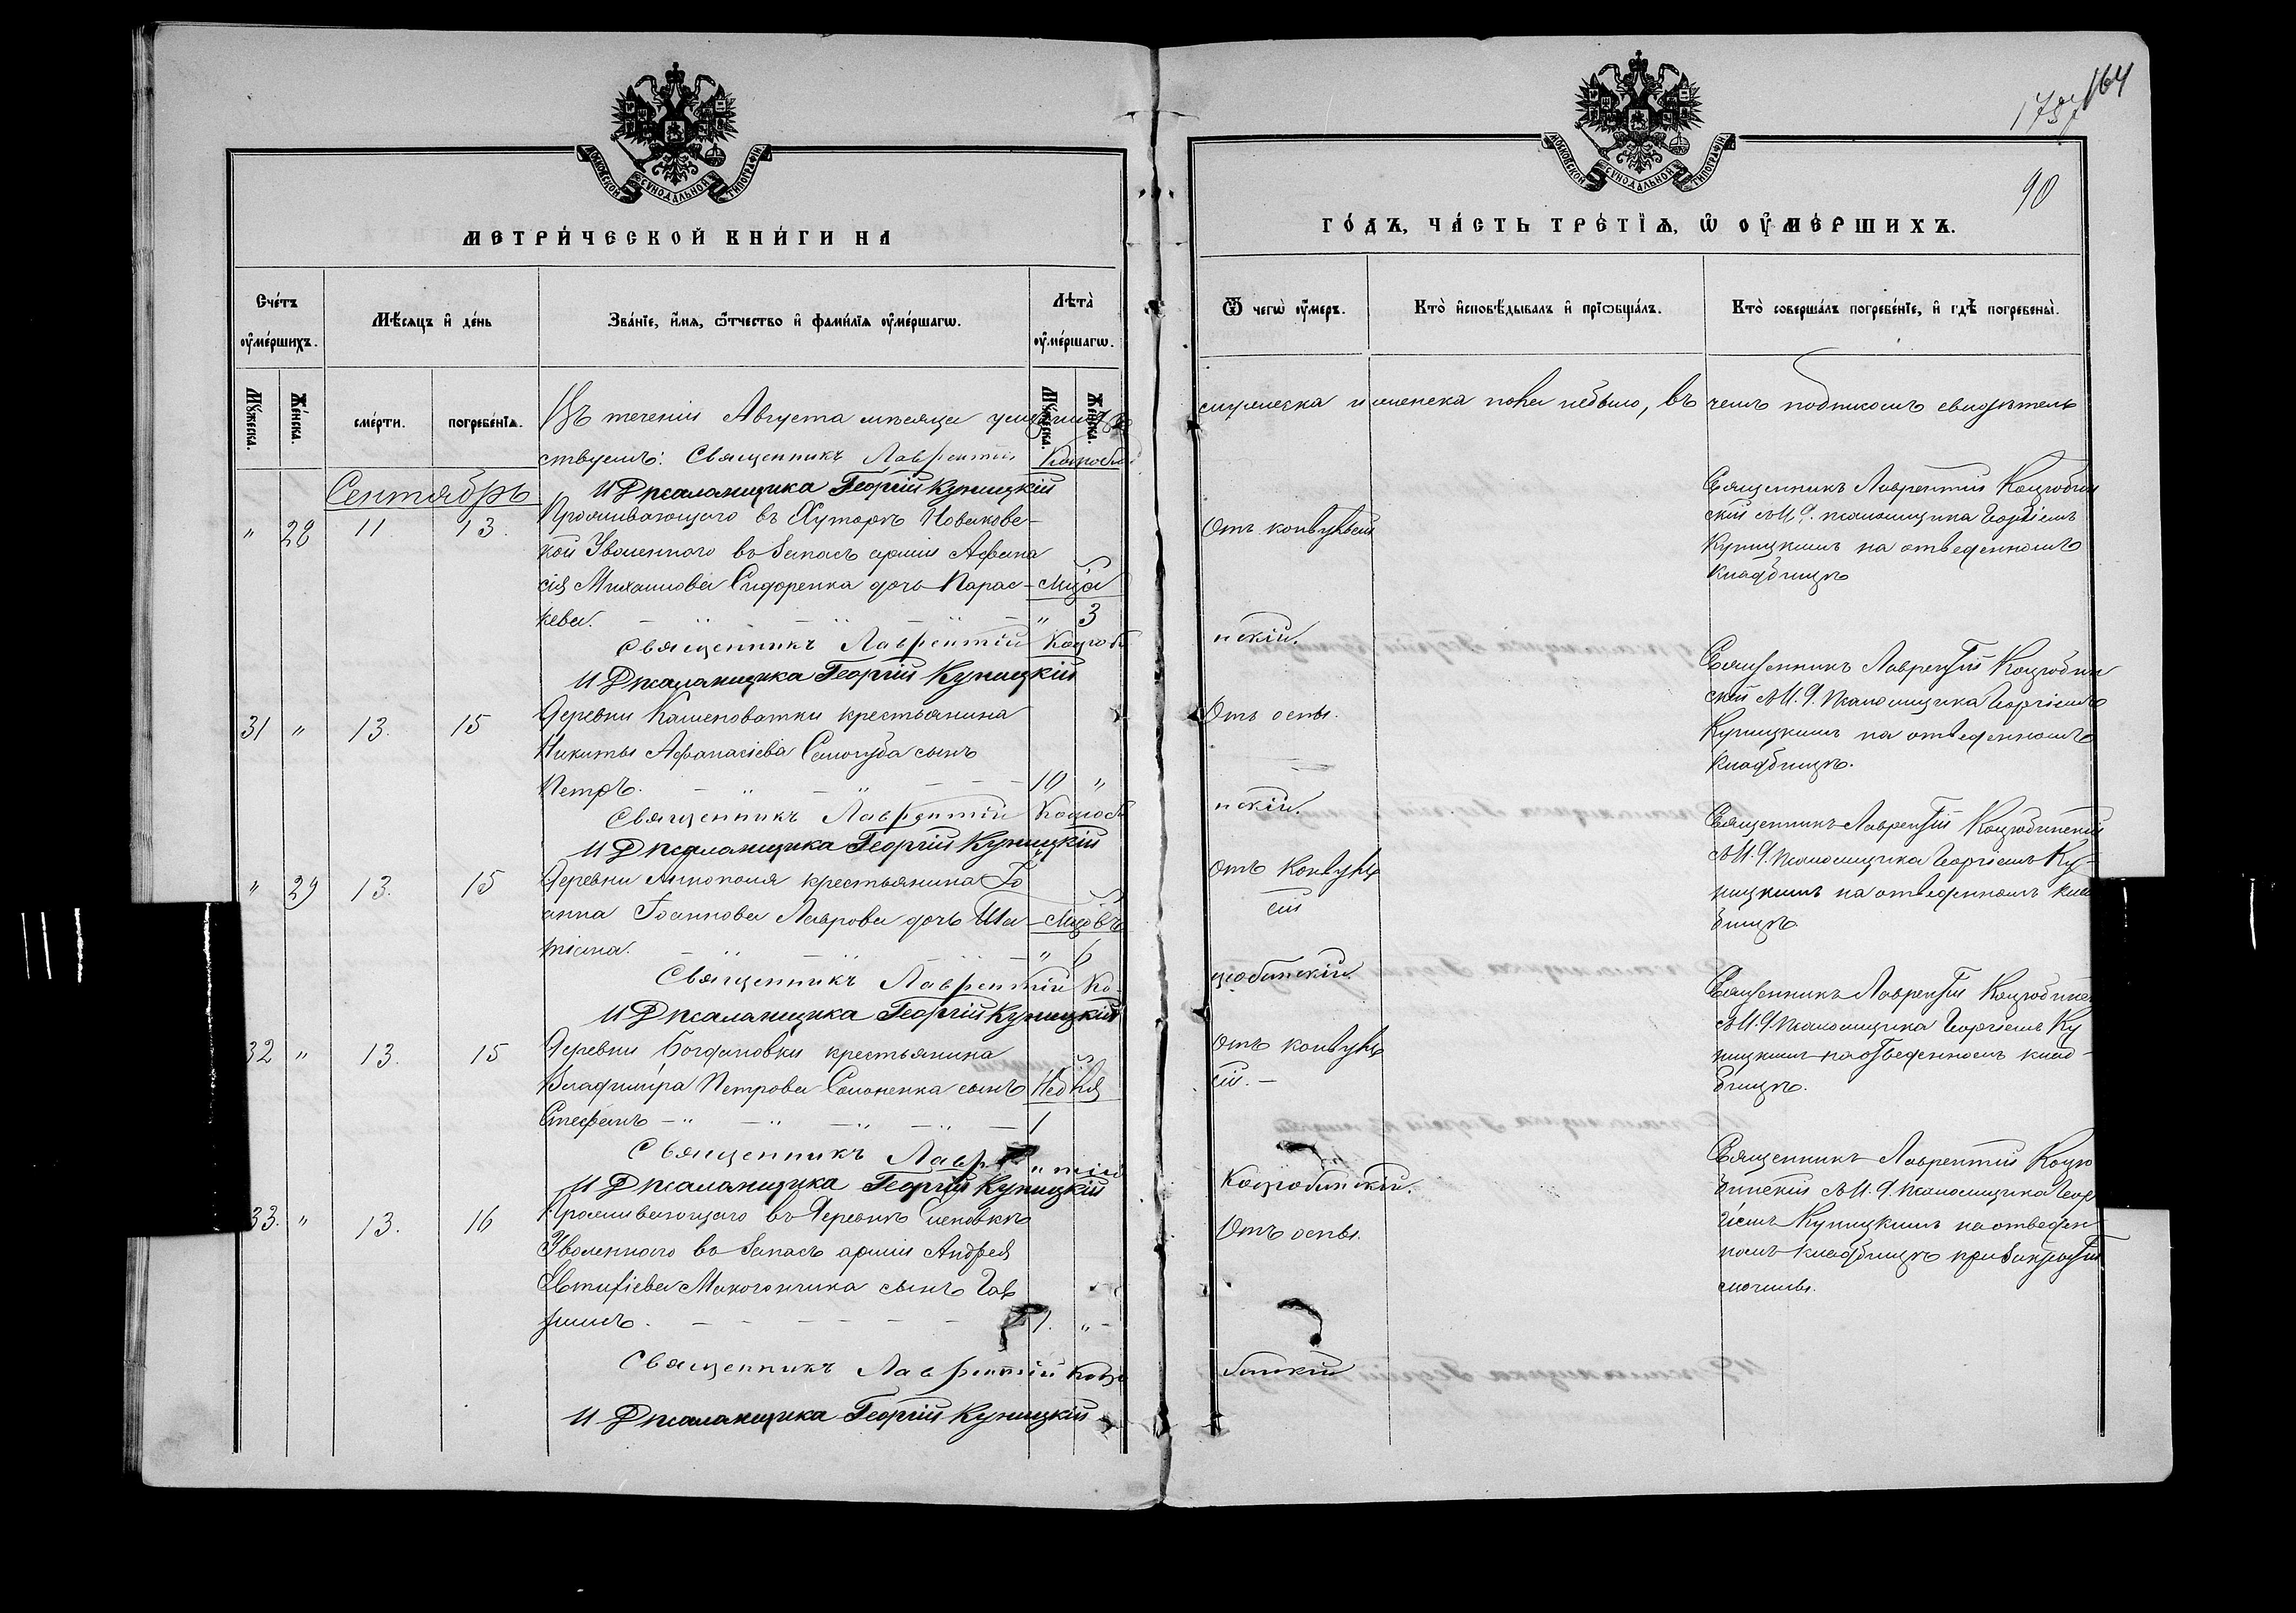 МОСКОВСКОЙ СУНОДАЛЬНОЙ ТИПОГРАФІИ
МЕТРИ́ЧЕСКОЙ КНИ́ГИ НА
Сче́тъ ᲂу҆ме́ршихъ.
Мѣ́сяцъ и҆ де́нь
Зва́нїе, и҆́мѧ, ѻ҆́тчество и҆ фами́лїѧ ᲂу҆ме́ршагѡ.
Лѣта̀ ᲂу҆ме́ршагѡ.
Му́жеска.
Же́нска.
сме́рти.
погребе́нїѧ.
Му́жеска.
Же́нска.
Въ теченіи Августа мѣсяца
ствуемъ: Священникъ Лаврентій Коцюби
И Д псаломщика Георгій Куницкій
Сентябрь
" 28 11 13. Проживающаго въ Хуторѣ Новиковс-
кой Уволеннаго въ Запасъ арміи Афана
сія Михаилова Сидоренка дочь Парас- Мца
кева. " 3
Священникъ Лаврентій Коцюб
И Д псаломщика Георгій Куницкій
31 " 13. 15 Деревни Каменоватки крестьянина
Никиты Афанасіева Самогуба сынъ
Петръ. 10 "
Священникъ Лаврентій Коцюб
И Д псаломщика Георгій Куницкій
" 29 13. 15 Деревни Аннополя крестьянина Іо
анна Іоаннова Лаврова дочь Та- Мцовъ
тіана. " 6
Священникъ Лаврентій Ко-
И Д псаломщика Георгій Куницкій
32 " 13. 15 Деревни Богдановки крестьянина
Владиміра Петрова Соломенка сынъ Нед
Стефанъ 1
Священникъ Лаврентій
И Д псаломщика Георгій Куницкій
33. " 13. 16 Проживающаго въ Деревнѣ
Уволеннаго въ Запасъ арміи Андрея
Евтифіева Макогончика сынъ Гав
ріилъ. 1. "
Священникъ Лаврентій Коцю
И Д псаломщика Георгій Куницкій
164
90
МОСКОВСКОЙ СУНОДАЛЬНОЙ ТИПОГРАФІИ
ГО́ДЪ, ЧА́СТЬ ТРЕ́ТЇѦ, Ѡ҆ ОУ҆МЕ́РШИХЪ.
Ѿ чегѡ̀ ᲂу҆́меръ.
Кто̀ и҆сповѣ́дывалъ и҆ прїѡбща́лъ.
Кто̀ соверша́лъ погребе́нїе, и҆ гдѣ̀ погребены̀.
мужеска и женска пола небыло, въ чемъ подписомъ свидѣтель
Священникъ Лаврентій Коцюбин
скій съ И. Д. псаломщика Георгіемъ
Куницкимъ на отведенномъ
кладбищѣ
Отъ конвульсіи
нскій.
Священникъ Лаврентій Коцюбин
скій съ И. Д. псаломщика Георгіемъ
Куницкимъ на отведенномъ
кладбищѣ.
Отъ оспы.
нскій.
Священникъ Лаврентій Коцюбинскій
съ И. Д. псаломщика Георгіемъ Ку-
ницкимъ на отведенномъ клад
бищѣ.
Отъ конвуль
сіи
цюбинскій.
Священникъ Лаврентій Коцюбинск
съ И. Д. псаломщика Георгіемъ Ку
ницкимъ на отведенномъ клад-
бищѣ.
Отъ конвуль
сіи.
Коцюбинскій.
Священникъ Лаврентій Коцю
бинскій съ И. Д. псаломщика Геор
гіемъ Куницкимъ на отведен
номъ кладбищѣ при закрытіи
могилы.
Отъ оспы.
бинскій